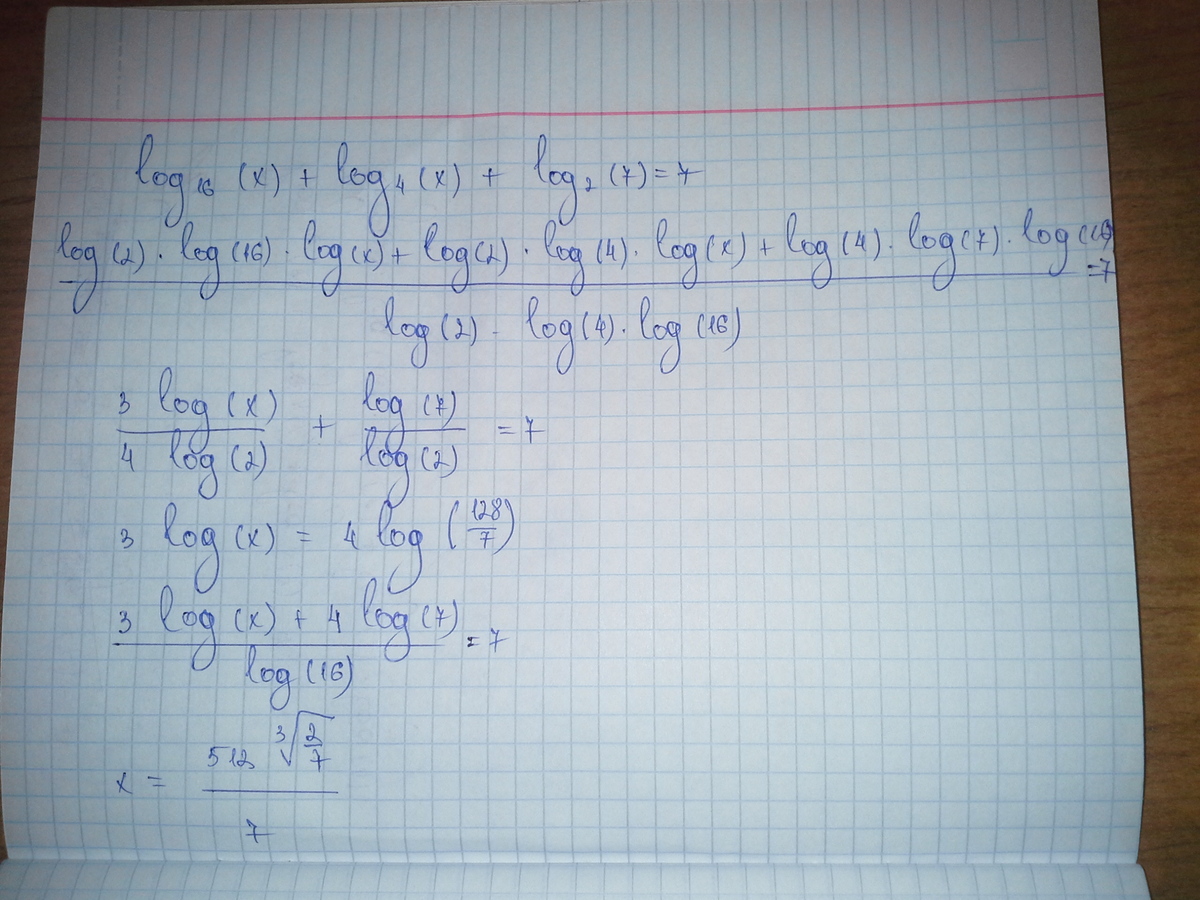 log₁₆ (x) + log₄ (x) + log₂ (7) = 7
log (2) · log (16) · log (x) + log (2) · log (4) · log (x) + log (4) · log (7) · log (16) = 7
log (2) - log (4) · log (16)
3 log (x) + log (7) = 7
4 log (2) log (2)
3 log (x) = 4 log (128/7)
3 log (x) + 4 log (7) = 7
log (16)
x = 512 ∛(2/7)
7